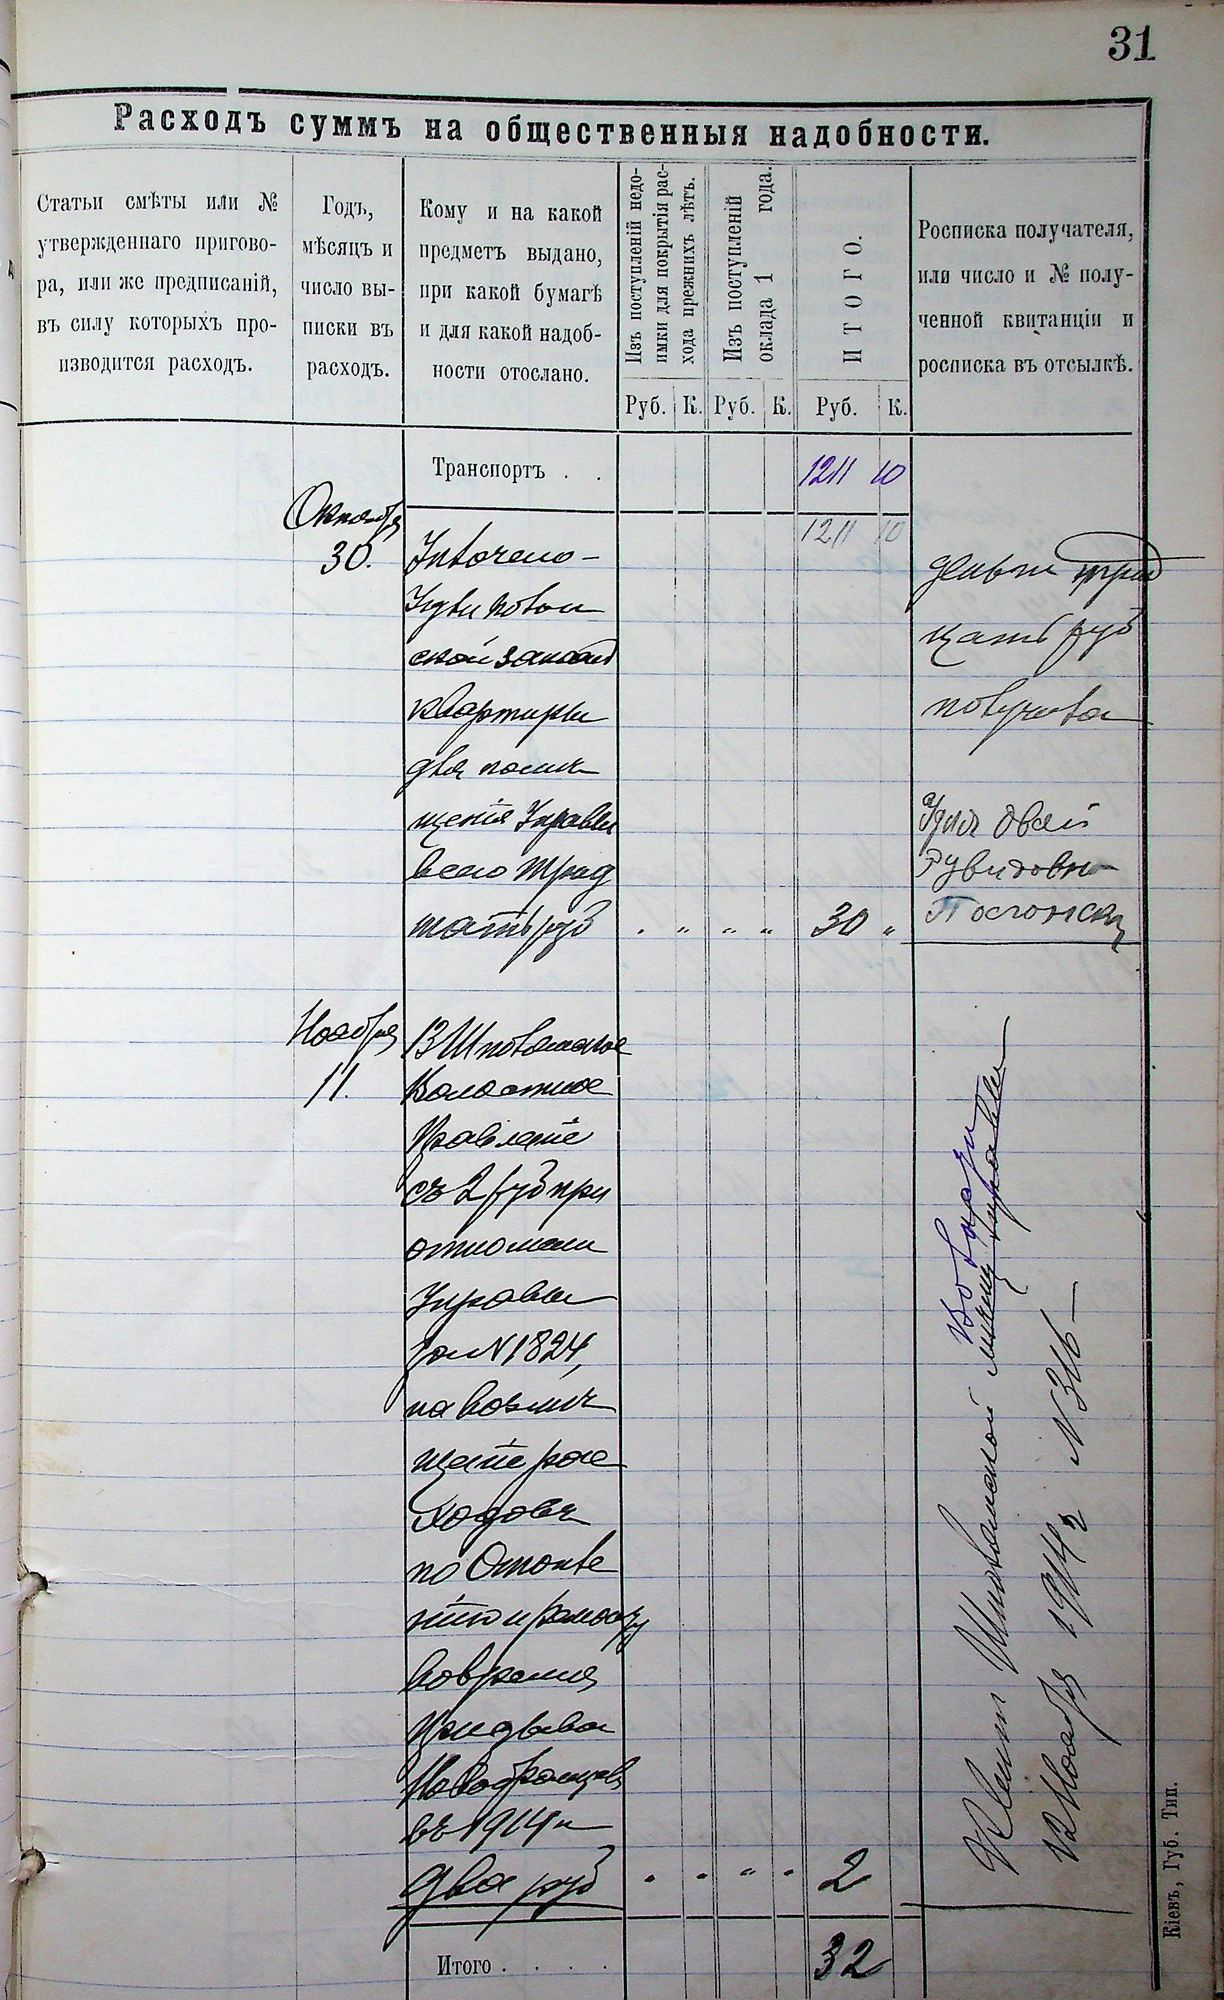 31
Расходъ суммъ на общественныя надобности.
Статьи смѣты или №
утвержденнаго пригово-
ра, или же предписаній,
въ силу которыхъ про-
изводится расходъ.
Годъ,
мѣсяцъ и
число вы-
писки въ
расходъ.
Кому и на какой
предметъ выдано,
при какой бумагѣ
и для какой надоб-
ности отослано.
Изъ поступленій недо-
имки для покрытія рас-
хода прежнихъ лѣтъ.
Изъ поступленій
оклада 1 года.
ИТОГО.
Росписка получателя,
или число и № полу-
ченной квитанціи и
росписка въ отсылкѣ.
Руб. К. Руб. К. Руб. К.
Транспортъ . . 1211 10
1211 10
Октября
30.
ской за наемъ
квартиры
для помѣ
щенія Управы
всего трид
цать руб . „ „ „ 30 „
деньги трид
цать руб
получила
Ноября
11.
В Шполянское
Волостное
Правленіе
съ 2 руб при
отношеніи
Управы
за N 1824,
на возмѣ
щеніе рас
ходовъ
по
во время
призыва
Новобранцевъ
въ 1914 г
два руб . . „ . 2
Квит Шполянской мѣщ управы
12 Ноября 1914 г N 316 —
Итого . . . . 32
Кіевъ, Губ. Тип.